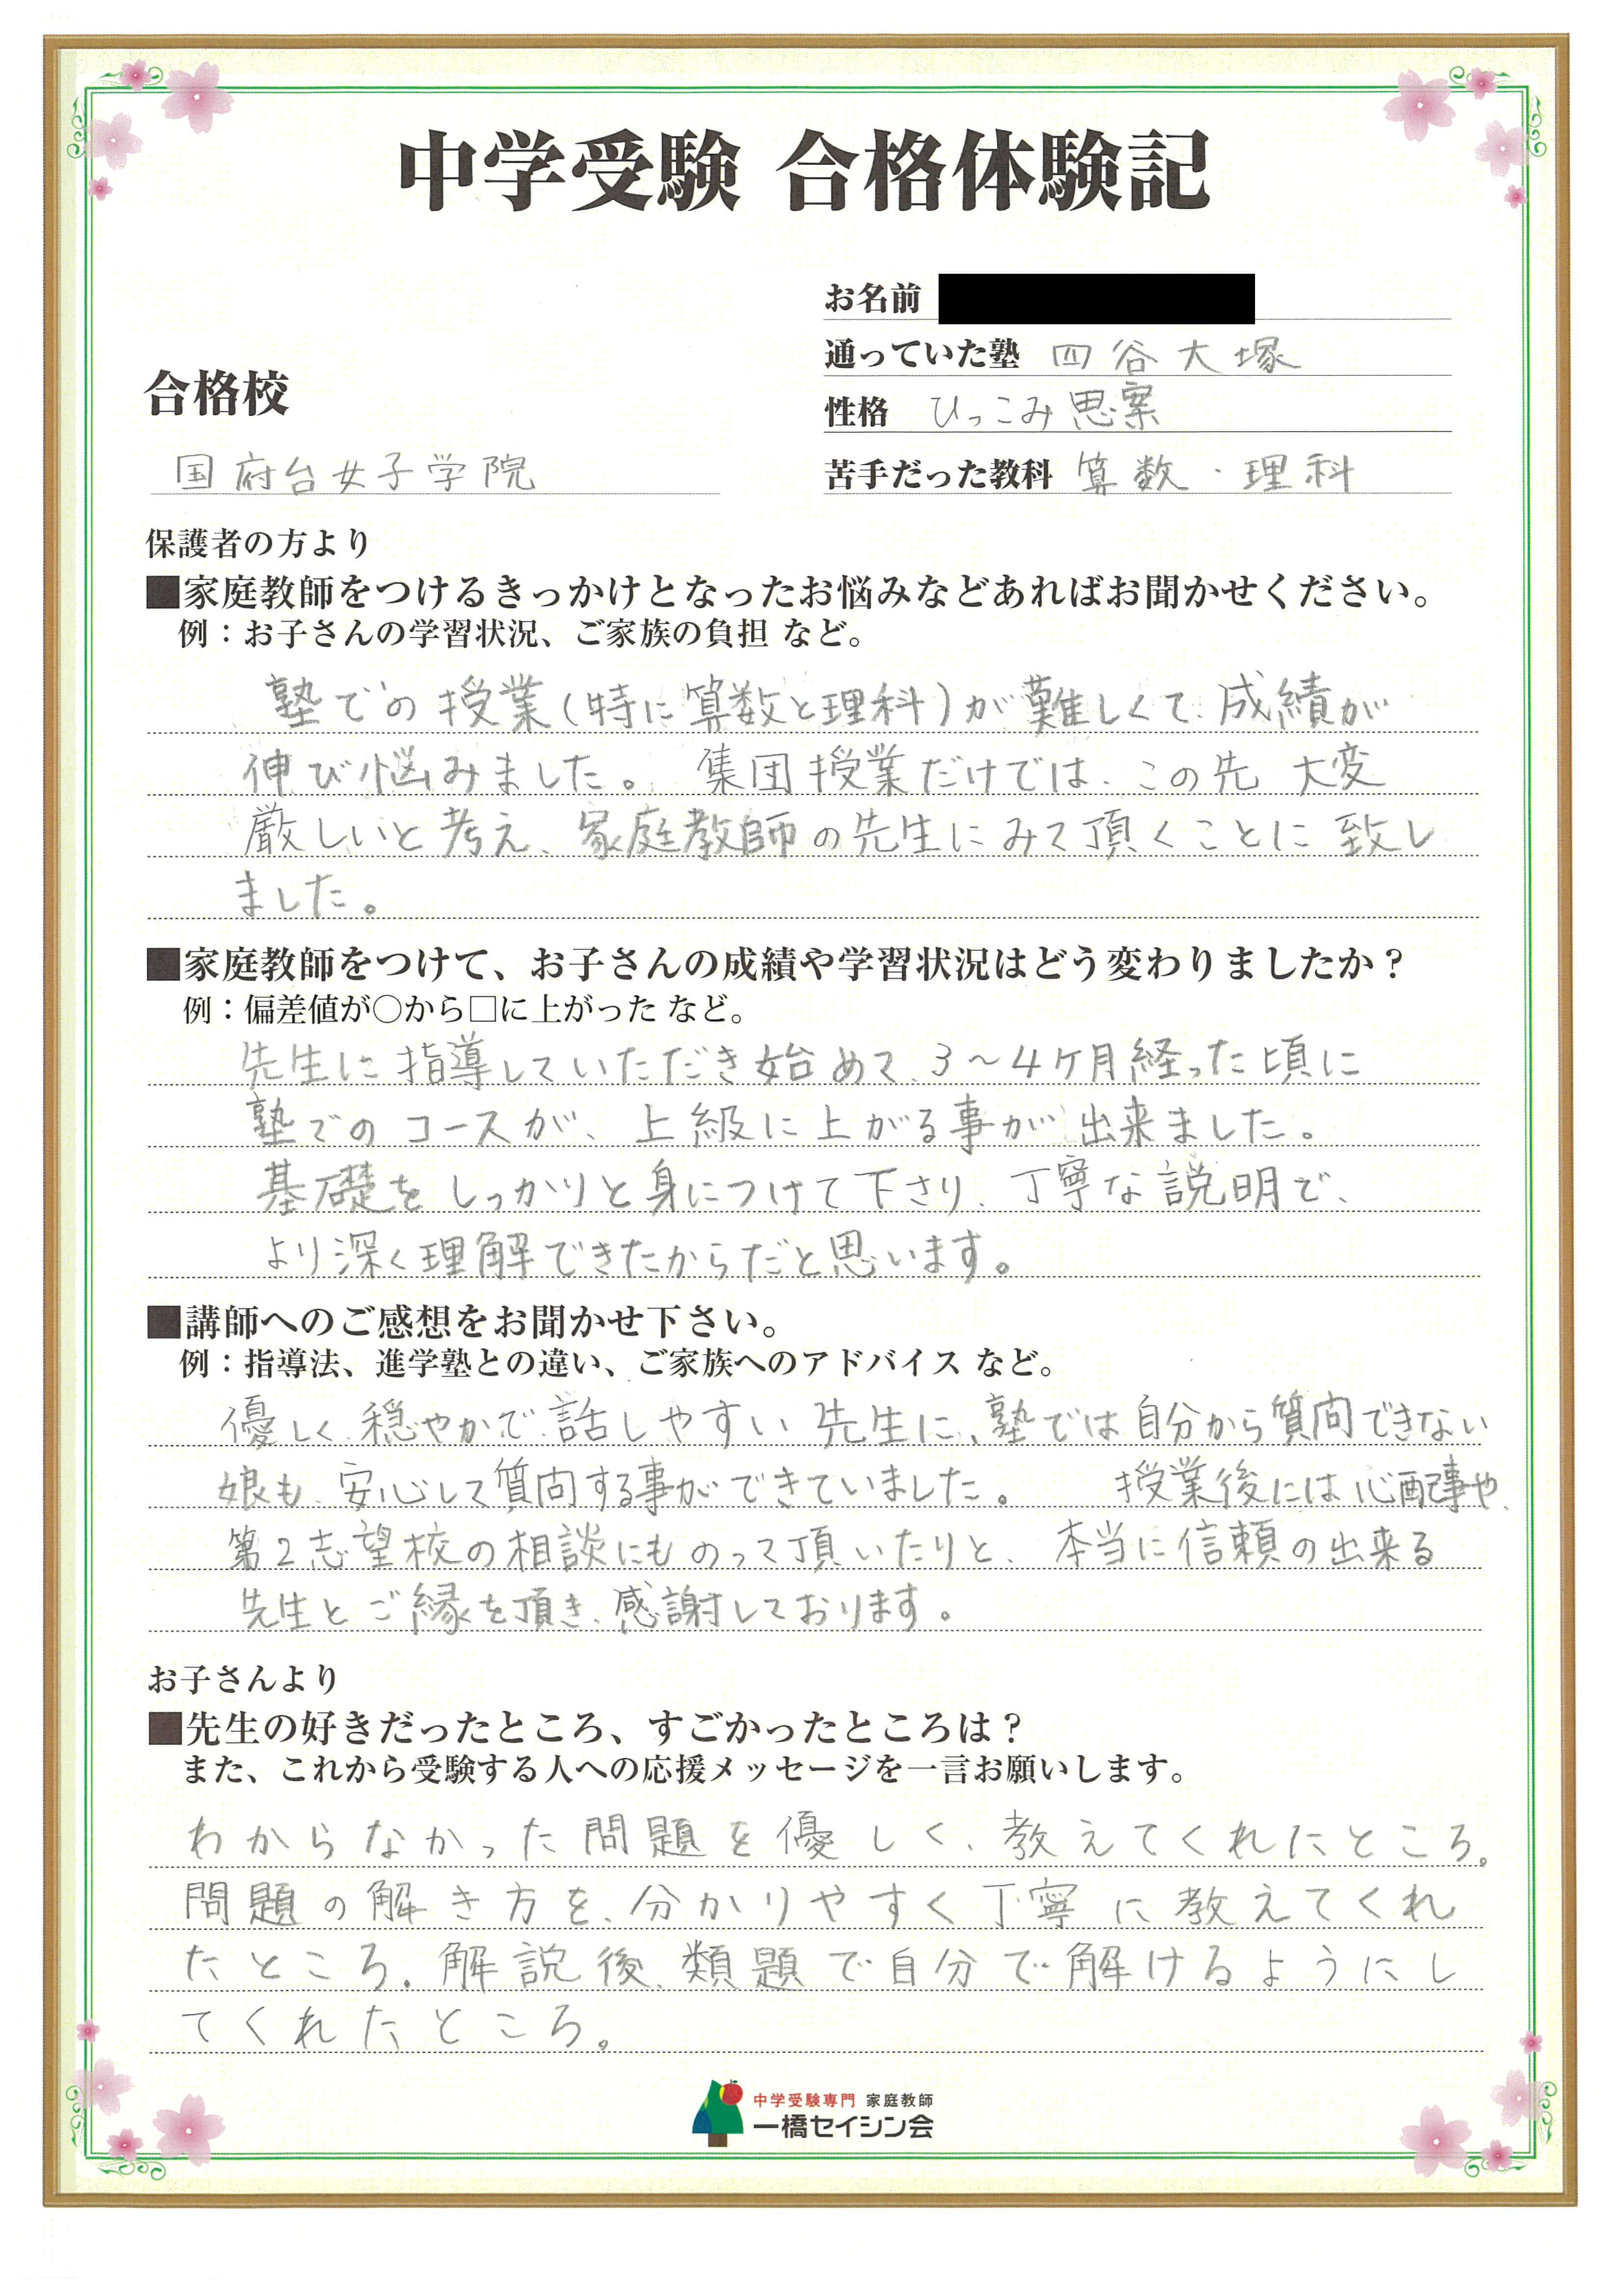 中学受験 合格体験記
お名前
通っていた塾 四谷大塚
合格校
性格 ひっこみ思案
国府台女子学院
苦手だった教科 算数・理科
保護者の方より
■家庭教師をつけるきっかけとなったお悩みなどあればお聞かせください。
例：お子さんの学習状況、ご家族の負担 など。
塾での授業(特に算数と理科)が難しくて、成績が
伸び悩みました。 集団授業だけでは、この先 大変
厳しいと考え、家庭教師の先生にみて頂くことに致し
ました。
■家庭教師をつけて、お子さんの成績や学習状況はどう変わりましたか？
例：偏差値が○から□に上がった など。
先生に指導していただき始めて、3～4ケ月経った頃に
塾でのコースが、上級に上がる事が出来ました。
基礎をしっかりと身につけて下さり、丁寧な説明で、
より深く理解できたからだと思います。
■講師へのご感想をお聞かせ下さい。
例：指導法、進学塾との違い、ご家族へのアドバイス など。
優しく、穏やかで、話しやすい先生に、塾では自分から質問できない
娘も、安心して質問する事ができていました。 授業後には心配事や、
第2志望校の相談にものって頂いたりと、本当に信頼の出来る
先生とご縁を頂き、感謝しております。
お子さんより
■先生の好きだったところ、すごかったところは？
また、これから受験する人への応援メッセージを一言お願いします。
わからなかった問題を優しく、教えてくれたところ。
問題の解き方を、分かりやすく丁寧に教えてくれ
たところ。解説後、類題で自分で解けるようにし
てくれたところ。
中学受験専門 家庭教師
一橋セイシン会